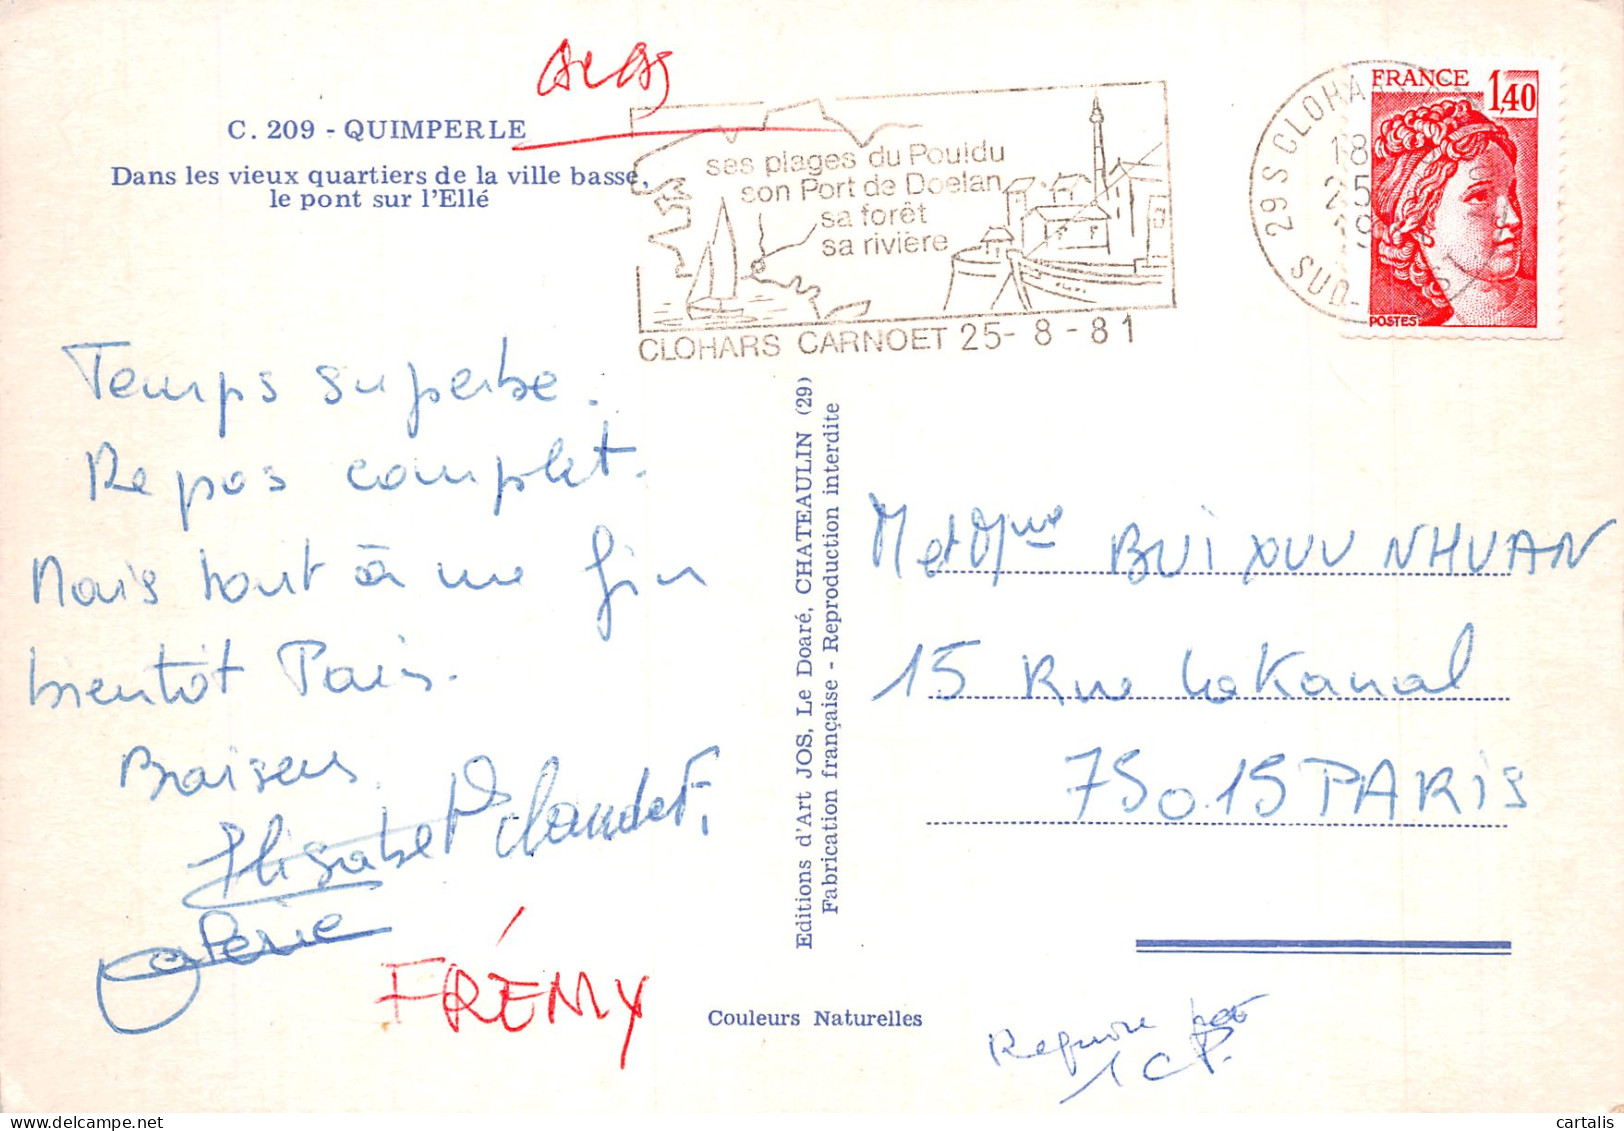 C. 209 - QUIMPERLE
Dans les vieux quartiers de la ville basse,
le pont sur l'Ellé
ses plages du Pouldu
son Port de Doelan
sa forêt
sa rivière
CLOHARS CARNOET 25-8-81
29S CLOHA
18
25
SUD-
FRANCE 1,40
POSTES
Temps superbe.
Repos complet.
Mais tout à une fin
bientôt Paris.
Baisers
Elisabeth Claude F.
FRÉMY
Editions d'Art JOS, Le Doaré, CHATEAULIN (29)
Fabrication française - Reproduction interdite
M et Mme BUI XUN NHUAN
15 Rue LaKanal
75015 PARIS
Couleurs Naturelles
1 CP.